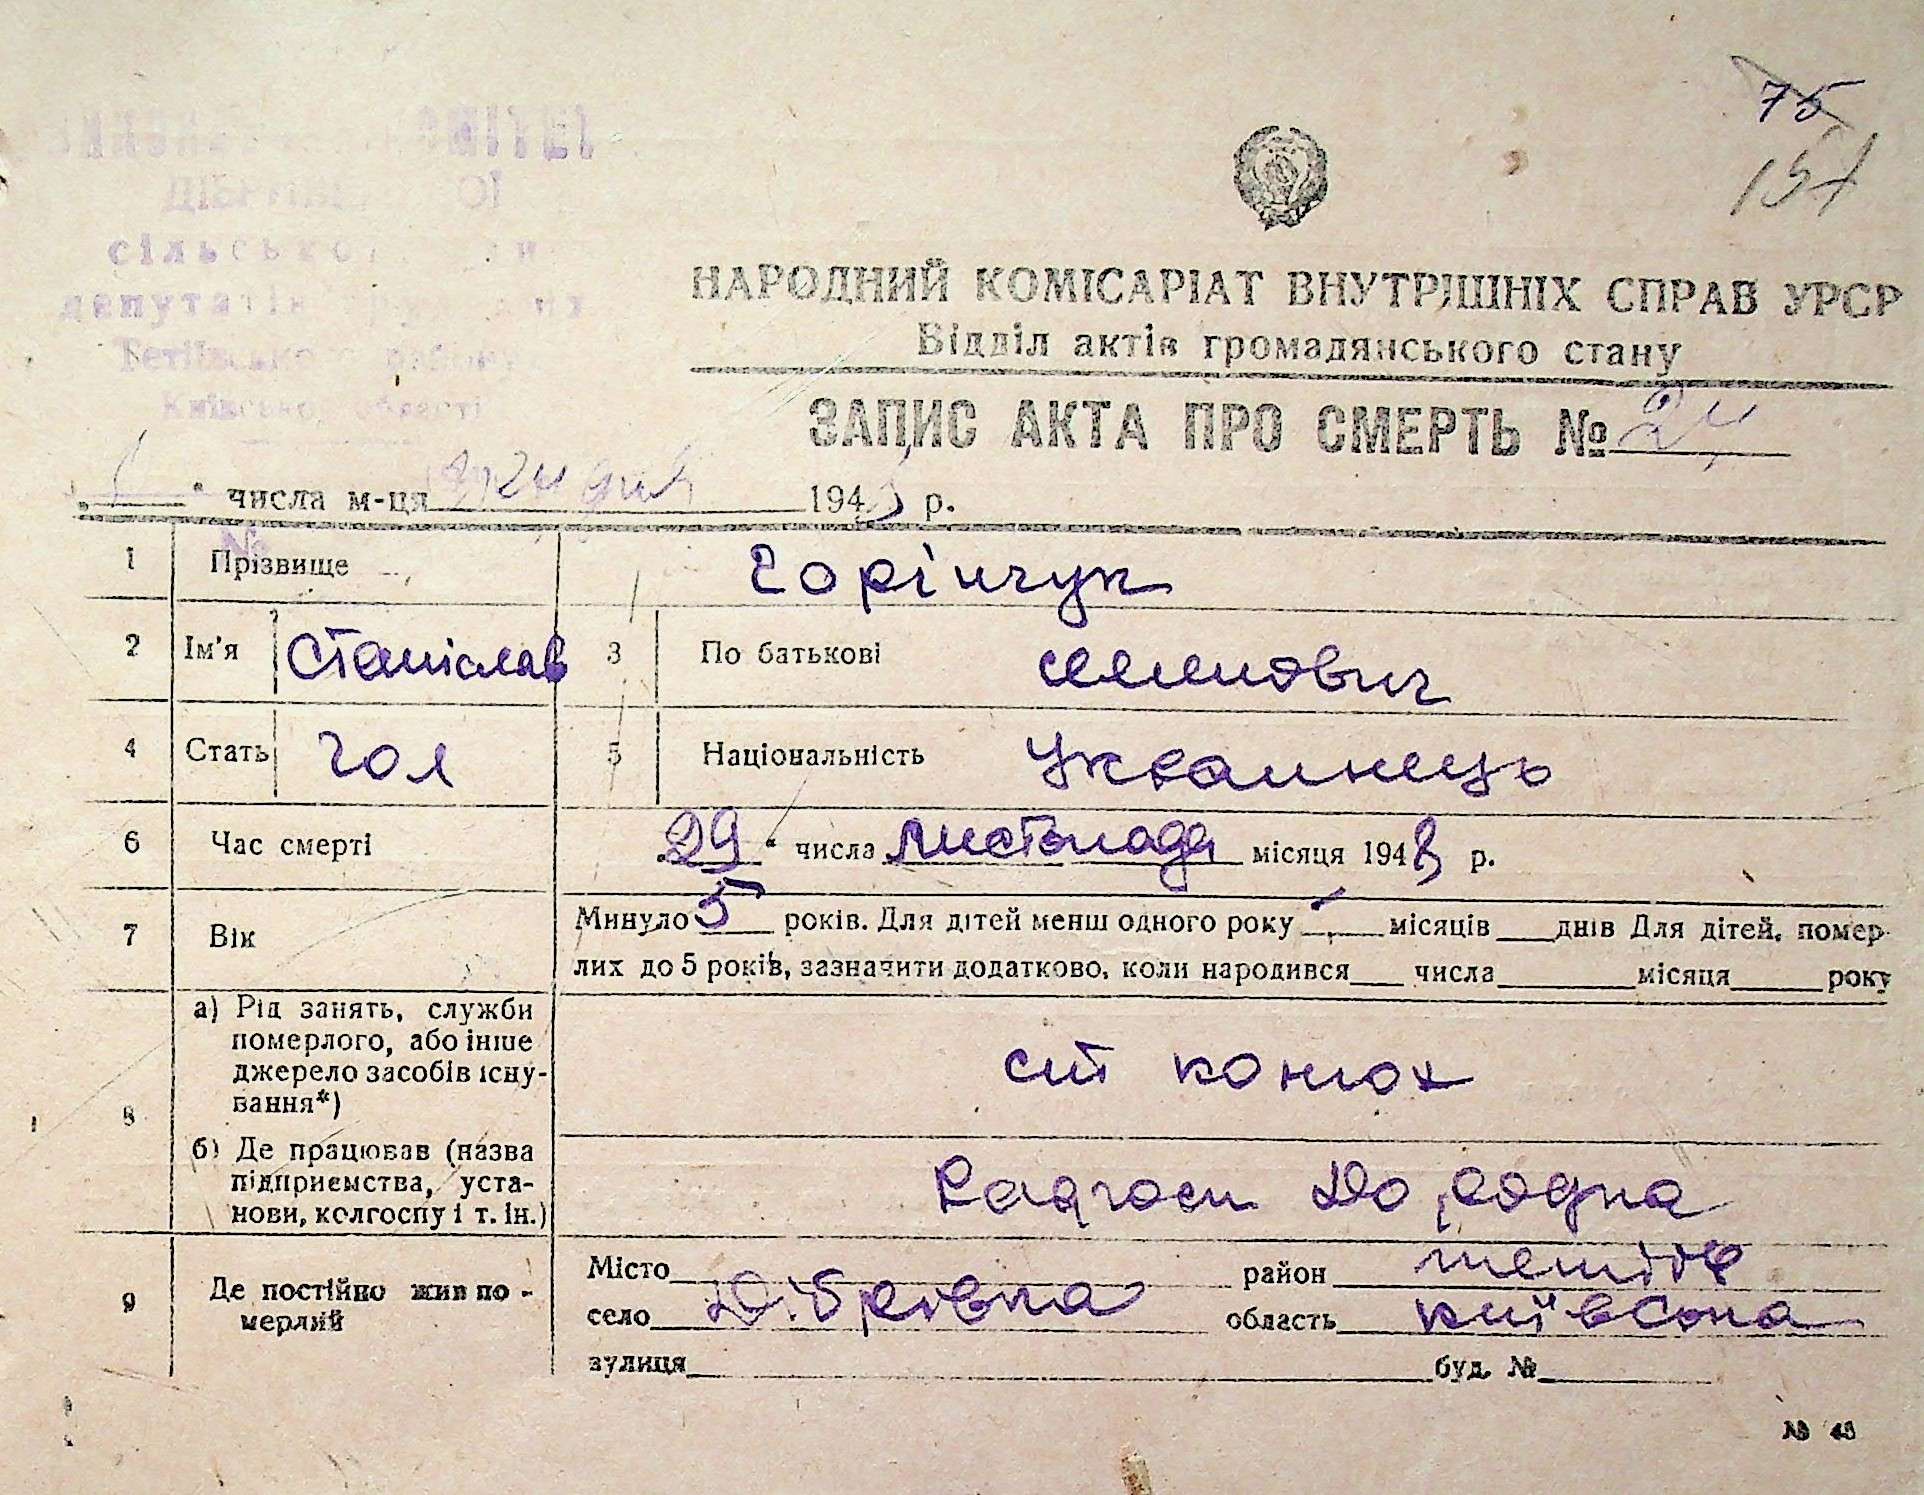 75
157
сільської
депутатів
Тетіївсько
Київсько області
НАРОДНИЙ КОМІСАРІАТ ВНУТРІШНІХ СПРАВ УРСР
Відділ актів громадянського стану
ЗАПИС АКТА ПРО СМЕРТЬ № 24
„1" числа м-ця грудня 1943 р.
1 Прізвище Горінчук
2 Ім'я Станіслав 3 По батькові семенович
4 Стать чол 5 Національність Украинець
6 Час смерті „29" числа листопада місяця 1943 р.
7 Вік Минуло 5 років. Для дітей менш одного року - місяців ___ днів Для дітей, помер-
лих до 5 років, зазначити додатково, коли народився ___ числа ___ місяця ___ року
8 а) Рід занять, служби
померлого, або інше
джерело засобів існу-
вання*)
син конюх
б) Де працював (назва
підприємства, уста-
нови, колгоспу і т. ін.)
Радгосп
9 Де постійно жив по-
мерлий
Місто ___ район тетіїв
село Дібрівка область київська
вулиця ___ буд. № ___
№ 43